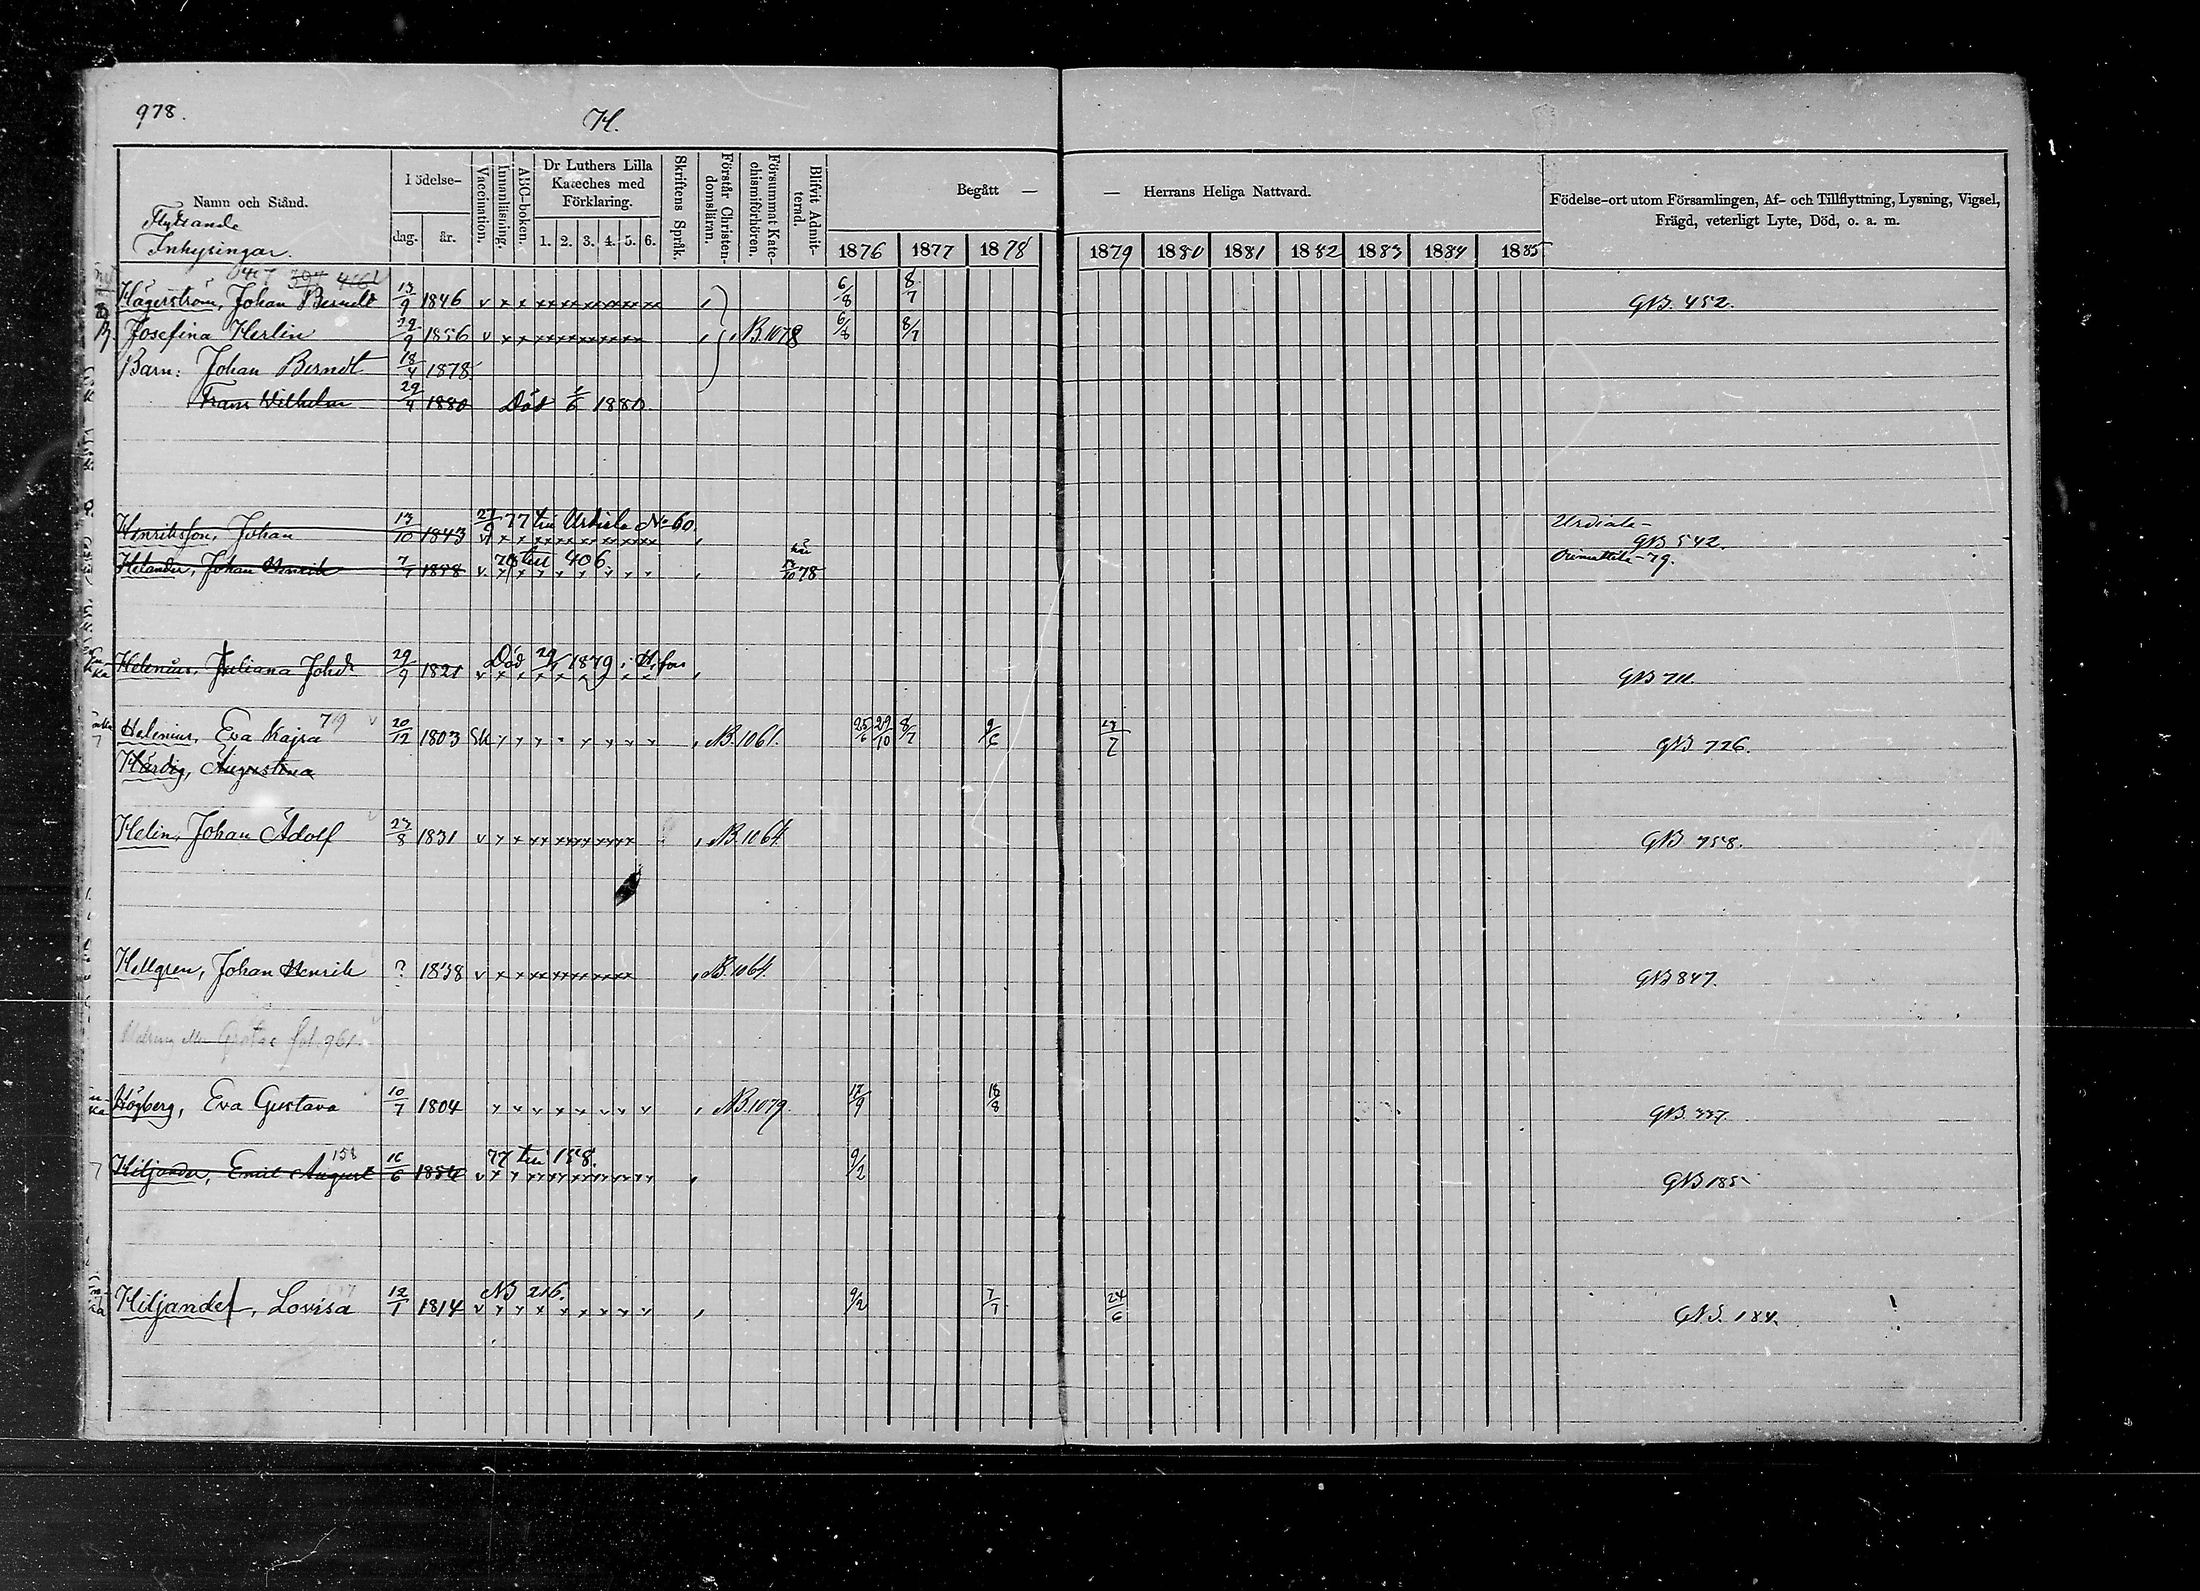 978.
H.
Namn och Stånd.
Flyttande
Inhysingar.
Födelse-
dag.
år.
Vaccination.
Innanläsning.
ABC-boken.
Dr Luthers Lilla
Kateches med
Förklaring.
1. 2. 3. 4. 5. 6.
Skriftens Språk.
Förstår Christen-
domsläran.
Försummat Kate-
chismiförhören.
Blifvit Admit-
terad.
Begått —
— Herrans Heliga Nattvard.
1876 1877 1878 1879 1880 1881 1882 1883 1884 1885
Födelse-ort utom Församlingen, Af- och Tillflyttning, Lysning, Vigsel,
Frägd, veterligt Lyte, Död, o. a. m.
Hägerström, Johan Berndt 13/9 1846 v 6/8 8/7 GNB. 452.
Josefina Herlin 29/9 1856 v NB.1078 6/8 8/7
Barn: Johan Berndt 18/4 1878
Frans Wilhelm 29/4 1880 Död 1/6 1880.
Henriksson, Johan 13/10 1843 77 till Urdiala No 60 Urdiala-
GNB 542.
Helander, Johan Henrik 7/7 1858 v till 406. 78 Orimattila-79.
Helenius, Juliana Johds 29/9 1821 v Död 1879 i H.fors GNB 711.
Helenius, Eva Kajsa 719 20/12 1803 Sk NB.1061. 25/6 29/10 8/7 9/6 GNB 726.
Härdig, Augustina
Helin, Johan Adolf 23/8 1831 v NB.1064. GNB 758.
Hellgren, Johan Henrik ? 1838 v NB.1064. GNB 847.
fol. 961.
Högberg, Eva Gustava 10/7 1804 NB.1079. 17/9 18/8 GNB. 337.
Hiljander, Emil August 158 16/6 1854 v 77 till 158. 9/2 GNB 185
Hiljander, Lovisa 12/1 1814 v NB 216. 9/2 7/7 24/6 GNB. 184.